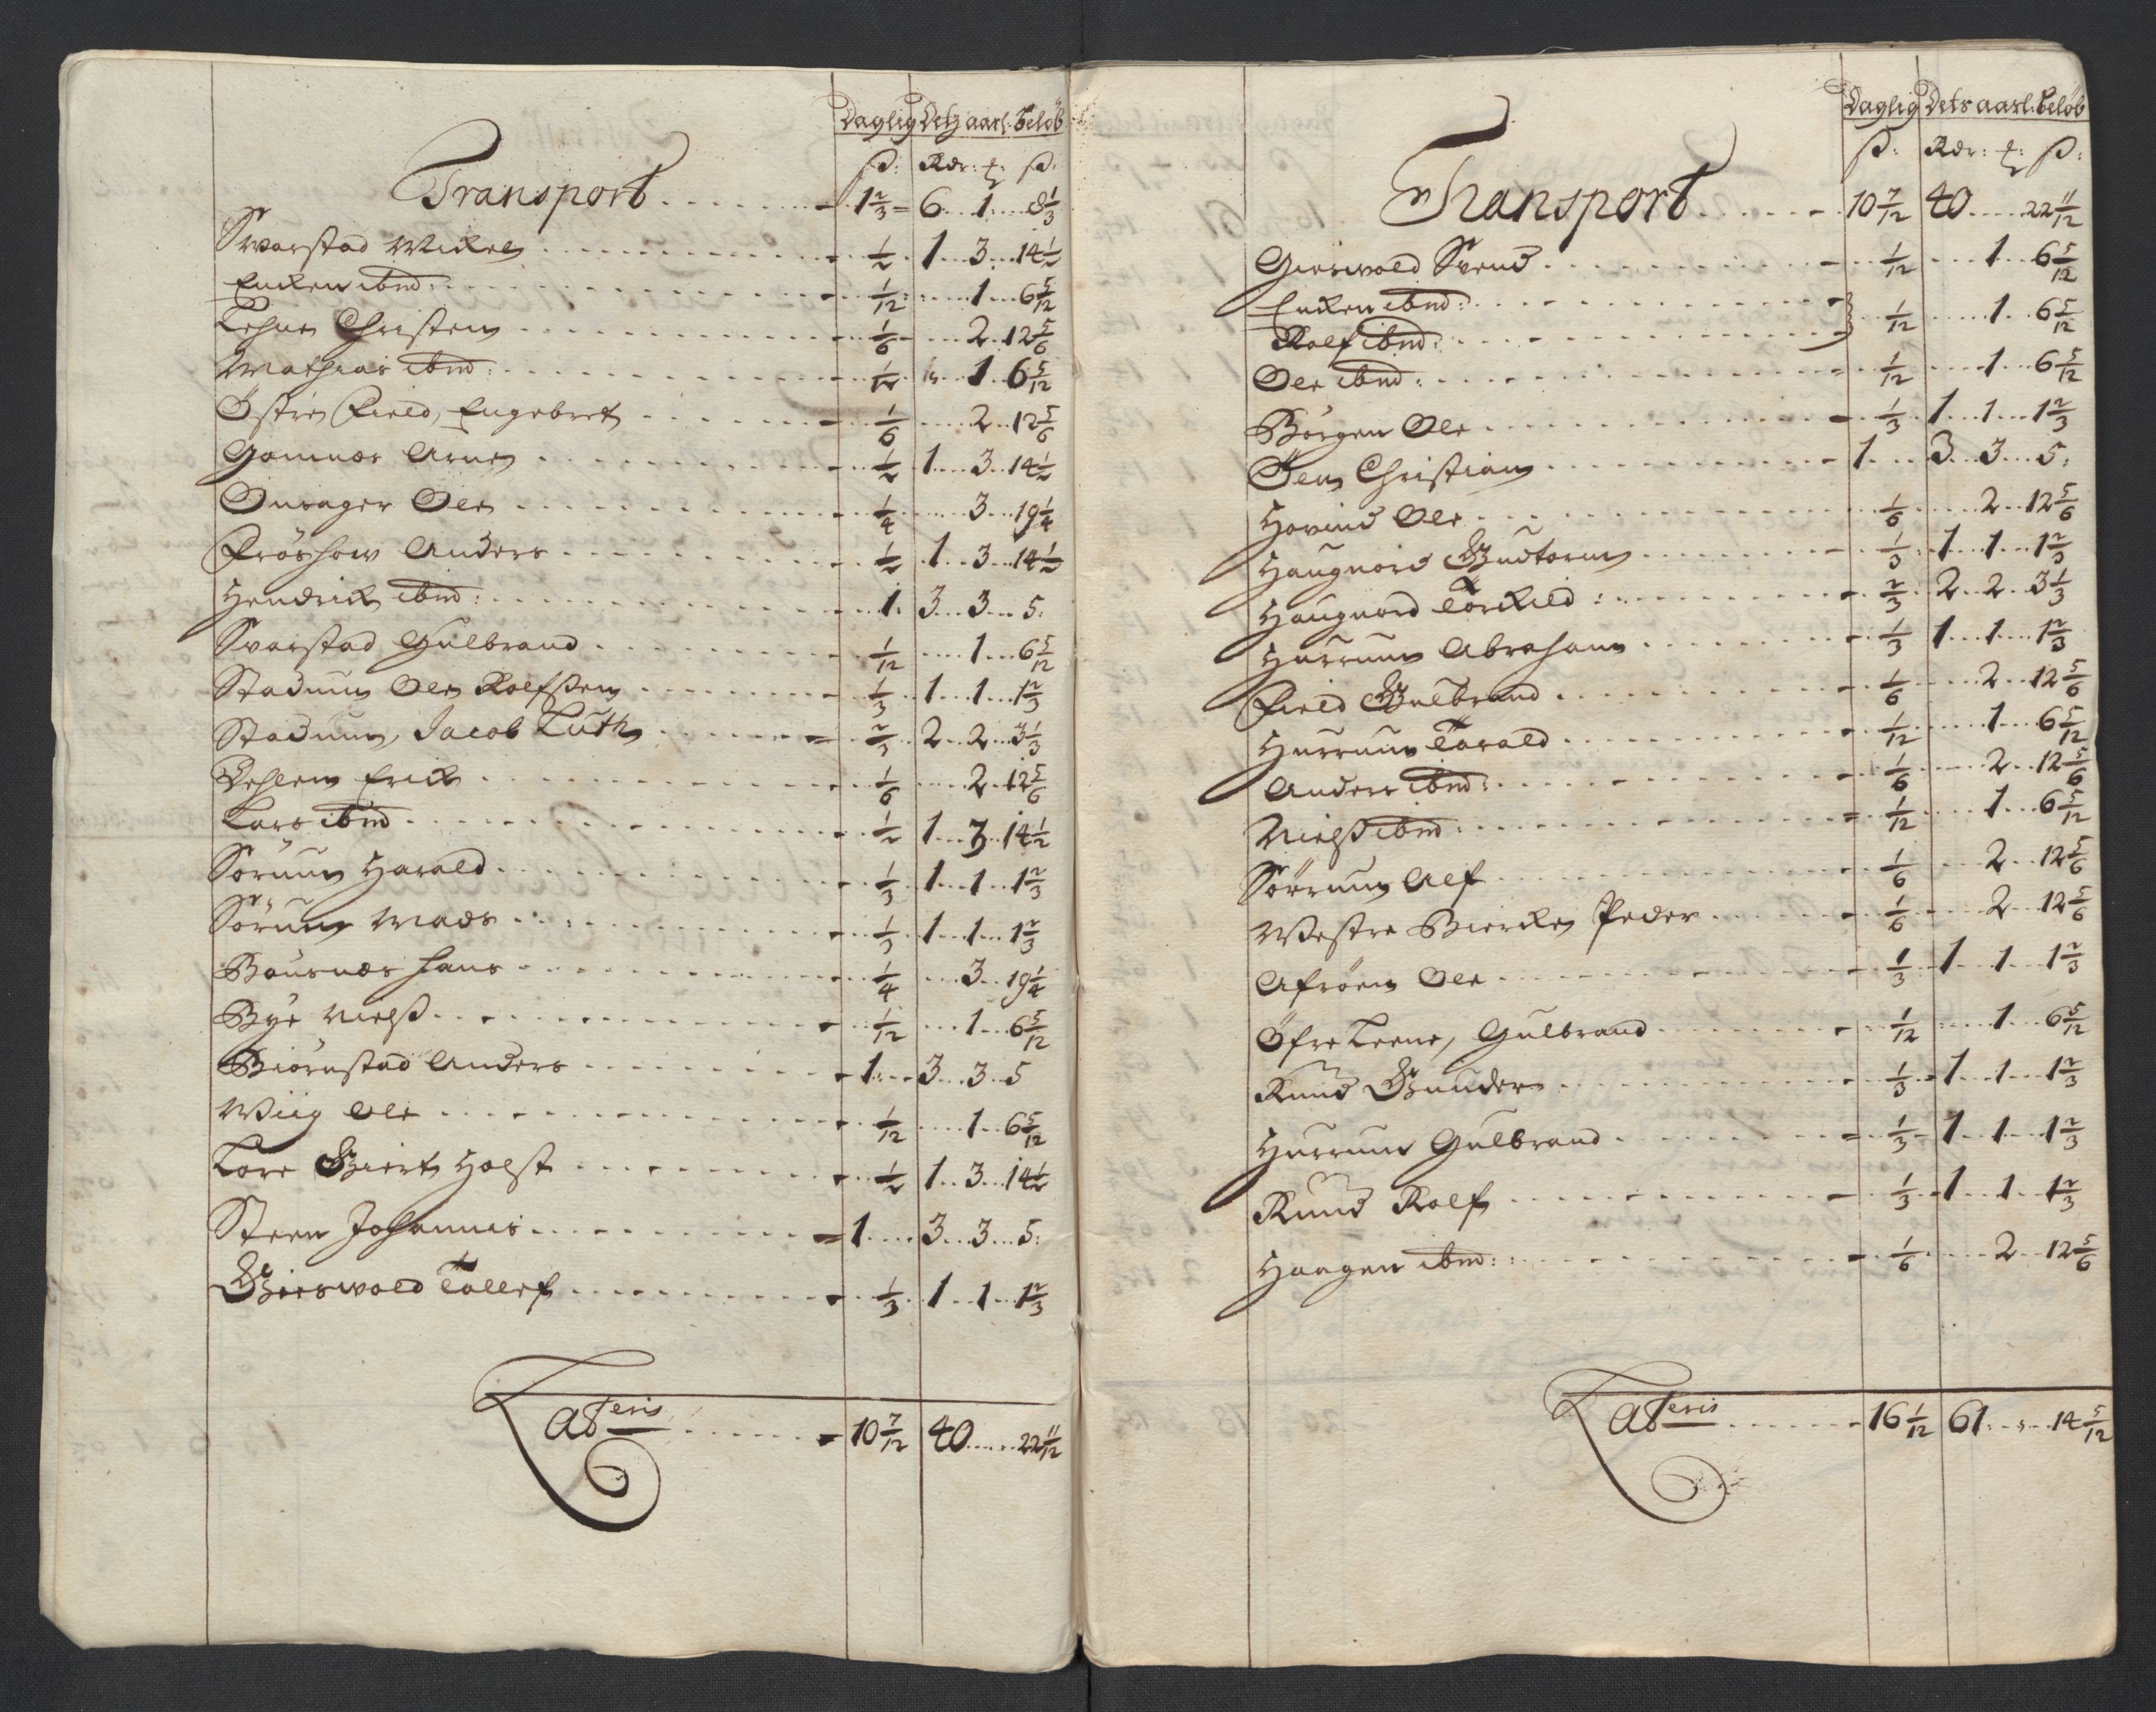 Daglig Detz aarl: beløb
ß: Rdr: f: ß:
Transport 1 2/3 6 1 8 1/3
Svarstad Mickel 1/2 1 3 14 1/2
Encken ibm: 1/12 1 6 5/12
Lehne Christen 1/6 2 12 5/6
Mathias ibm: 1/12 1 6 5/12
Østre Field, Engebret 1/6 2 12 5/6
Gomnæs Arne 1/2 1 3 14 1/2
Onsager Ole 1/4 3 19 1/4
Frøshow Anders 1/2 1 3 14 1/2
Hendrich ibm: 1 3 3 5
Svarstad Gulbrand 1/12 1 6 5/12
Stadum Ole Rolfsen 1/3 1 1 1 2/3
Stadum, Jacob Luth 2/3 2 2 3 1/3
Dehlen Erich 1/6 2 12 5/6
Lars ibm 1/2 1 3 14 1/2
Sørum Harald 1/3 1 1 1 2/3
Sørum Mads 1/3 1 1 1 2/3
Bousnæs Hans 1/4 3 19 1/4
Bye Nielß 1/12 1 6 5/12
Biørnstad Anders 1 3 3 5
Wiig Ole 1/12 1 6 5/12
Lore Giert Holst 1/2 1 3 14 1/2
Steen Johannes 1 3 3 5
Giesvold Tollef 1/3 1 1 1 2/3
Lateris 10 7/12 40 22 11/12
Daglig Dets aarl: beløb
ß: Rdr: f: ß:
Transport 10 7/12 40 22 11/12
Giesvold Svend 1/12 1 6 5/12
Encken ibm:
Rolf ibm: 1/12 1 6 5/12
Ole ibm: 1/12 1 6 5/12
Børgen Ole 1/3 1 1 1 2/3
Øen Christian 1 3 3 5
Hovind Ole 1/6 2 12 5/6
Haugnord Gudtorm 1/3 1 1 1 2/3
Haugnord Torkild 2/3 2 2 3 1/3
Hurrum Abraham 1/3 1 1 1 2/3
Field Gulbrand 1/6 2 12 5/6
Hurrum Torald 1/12 1 6 5/12
Anders ibm: 1/6 2 12 5/6
Nielß ibm: 1/12 1 6 5/12
Sørrum Alf 1/6 2 12 5/6
Westre Biercke Peder 1/6 2 12 5/6
Afrøen Ole 1/3 1 1 1 2/3
Øfre Leene, Gulbrand 1/12 1 6 5/12
Rund Gunder 1/3 1 1 1 2/3
Hurrum Gulbrand 1/3 1 1 1 2/3
Rund Rolf 1/3 1 1 1 2/3
Haagen ibm: 1/6 2 12 5/6
Lateris 16 1/12 61 14 5/12